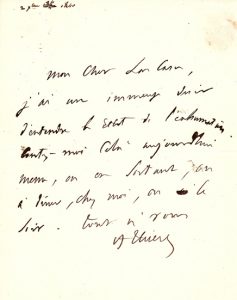 mon cher Las Cases,
j'ai un immense désir
d'entendre le récit de l'exhumation
Contez-moi cela aujourd'hui
même, ou en sortant, ou
à dîner, chez moi, ou le
soir. tout à vous
A Thiers